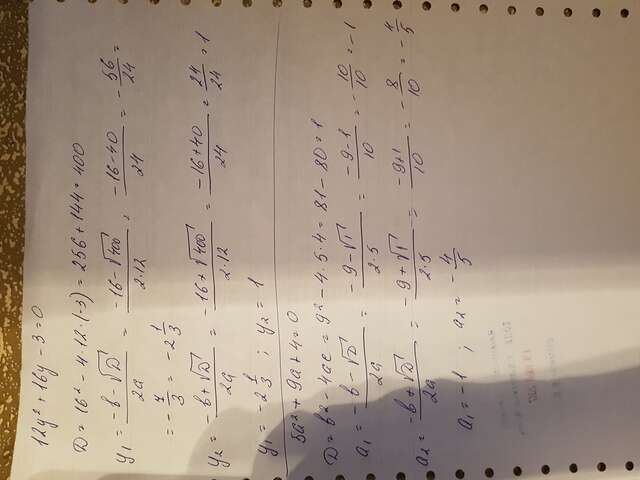 12y² + 16y - 3 = 0
D = 16² - 4·12·(-3) = 256 + 144 = 400
y₁ = (-b - √D)/2a = (-16 - √400)/2·12 = (-16 - 40)/24 = -56/24 =
= -7/3 = -2 1/3
y₂ = (-b + √D)/2a = (-16 + √400)/2·12 = (-16 + 40)/24 = 24/24 = 1
y₁ = -2 1/3 ; y₂ = 1
5a² + 9a + 4 = 0
D = b² - 4ac = 9² - 4·5·4 = 81 - 80 = 1
a₁ = (-b - √D)/2a = (-9 - √1)/2·5 = (-9 - 1)/10 = -10/10 = -1
a₂ = (-b + √D)/2a = (-9 + √1)/2·5 = (-9 + 1)/10 = -8/10 = -4/5
a₁ = -1 ; a₂ = -4/5